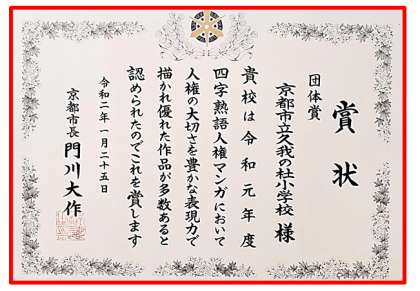 賞状
団体賞
京都市立久我の杜小学校 様
貴校は令和元年度
四字熟語人権マンガにおいて
人権の大切さを豊かな表現力で
描かれ優れた作品が多数あると
認められたのでこれを賞します
令和二年一月二十五日
京都市長 門川大作